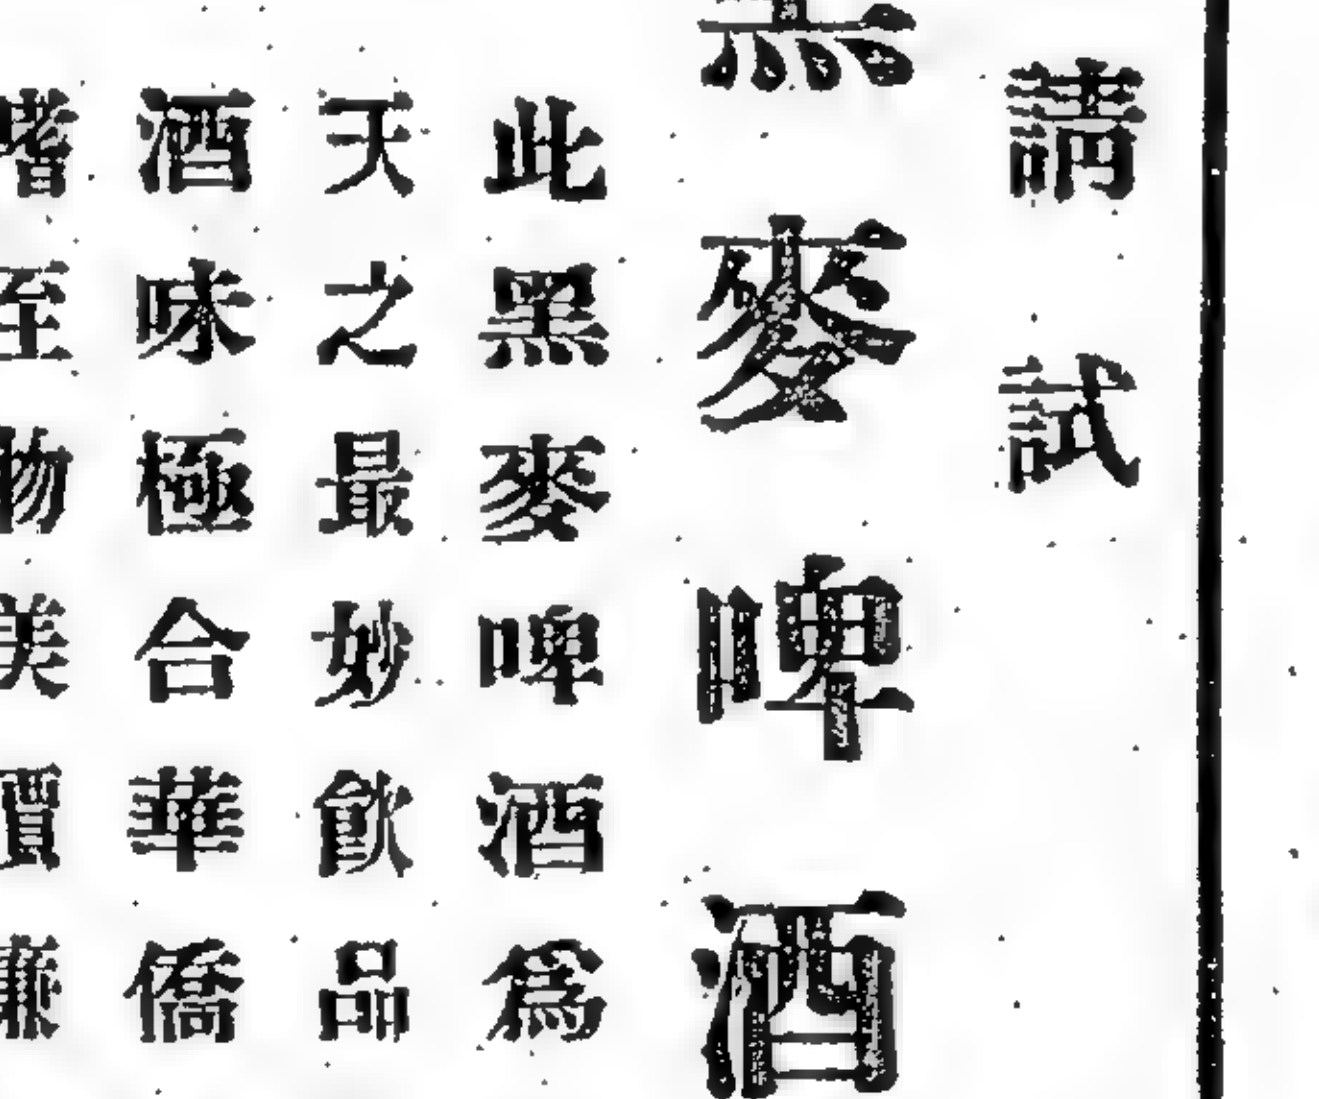 請試
黑麥啤酒
此黑麥啤酒爲
天之最妙飲品
酒味極合華僑
嗜至物美價廉